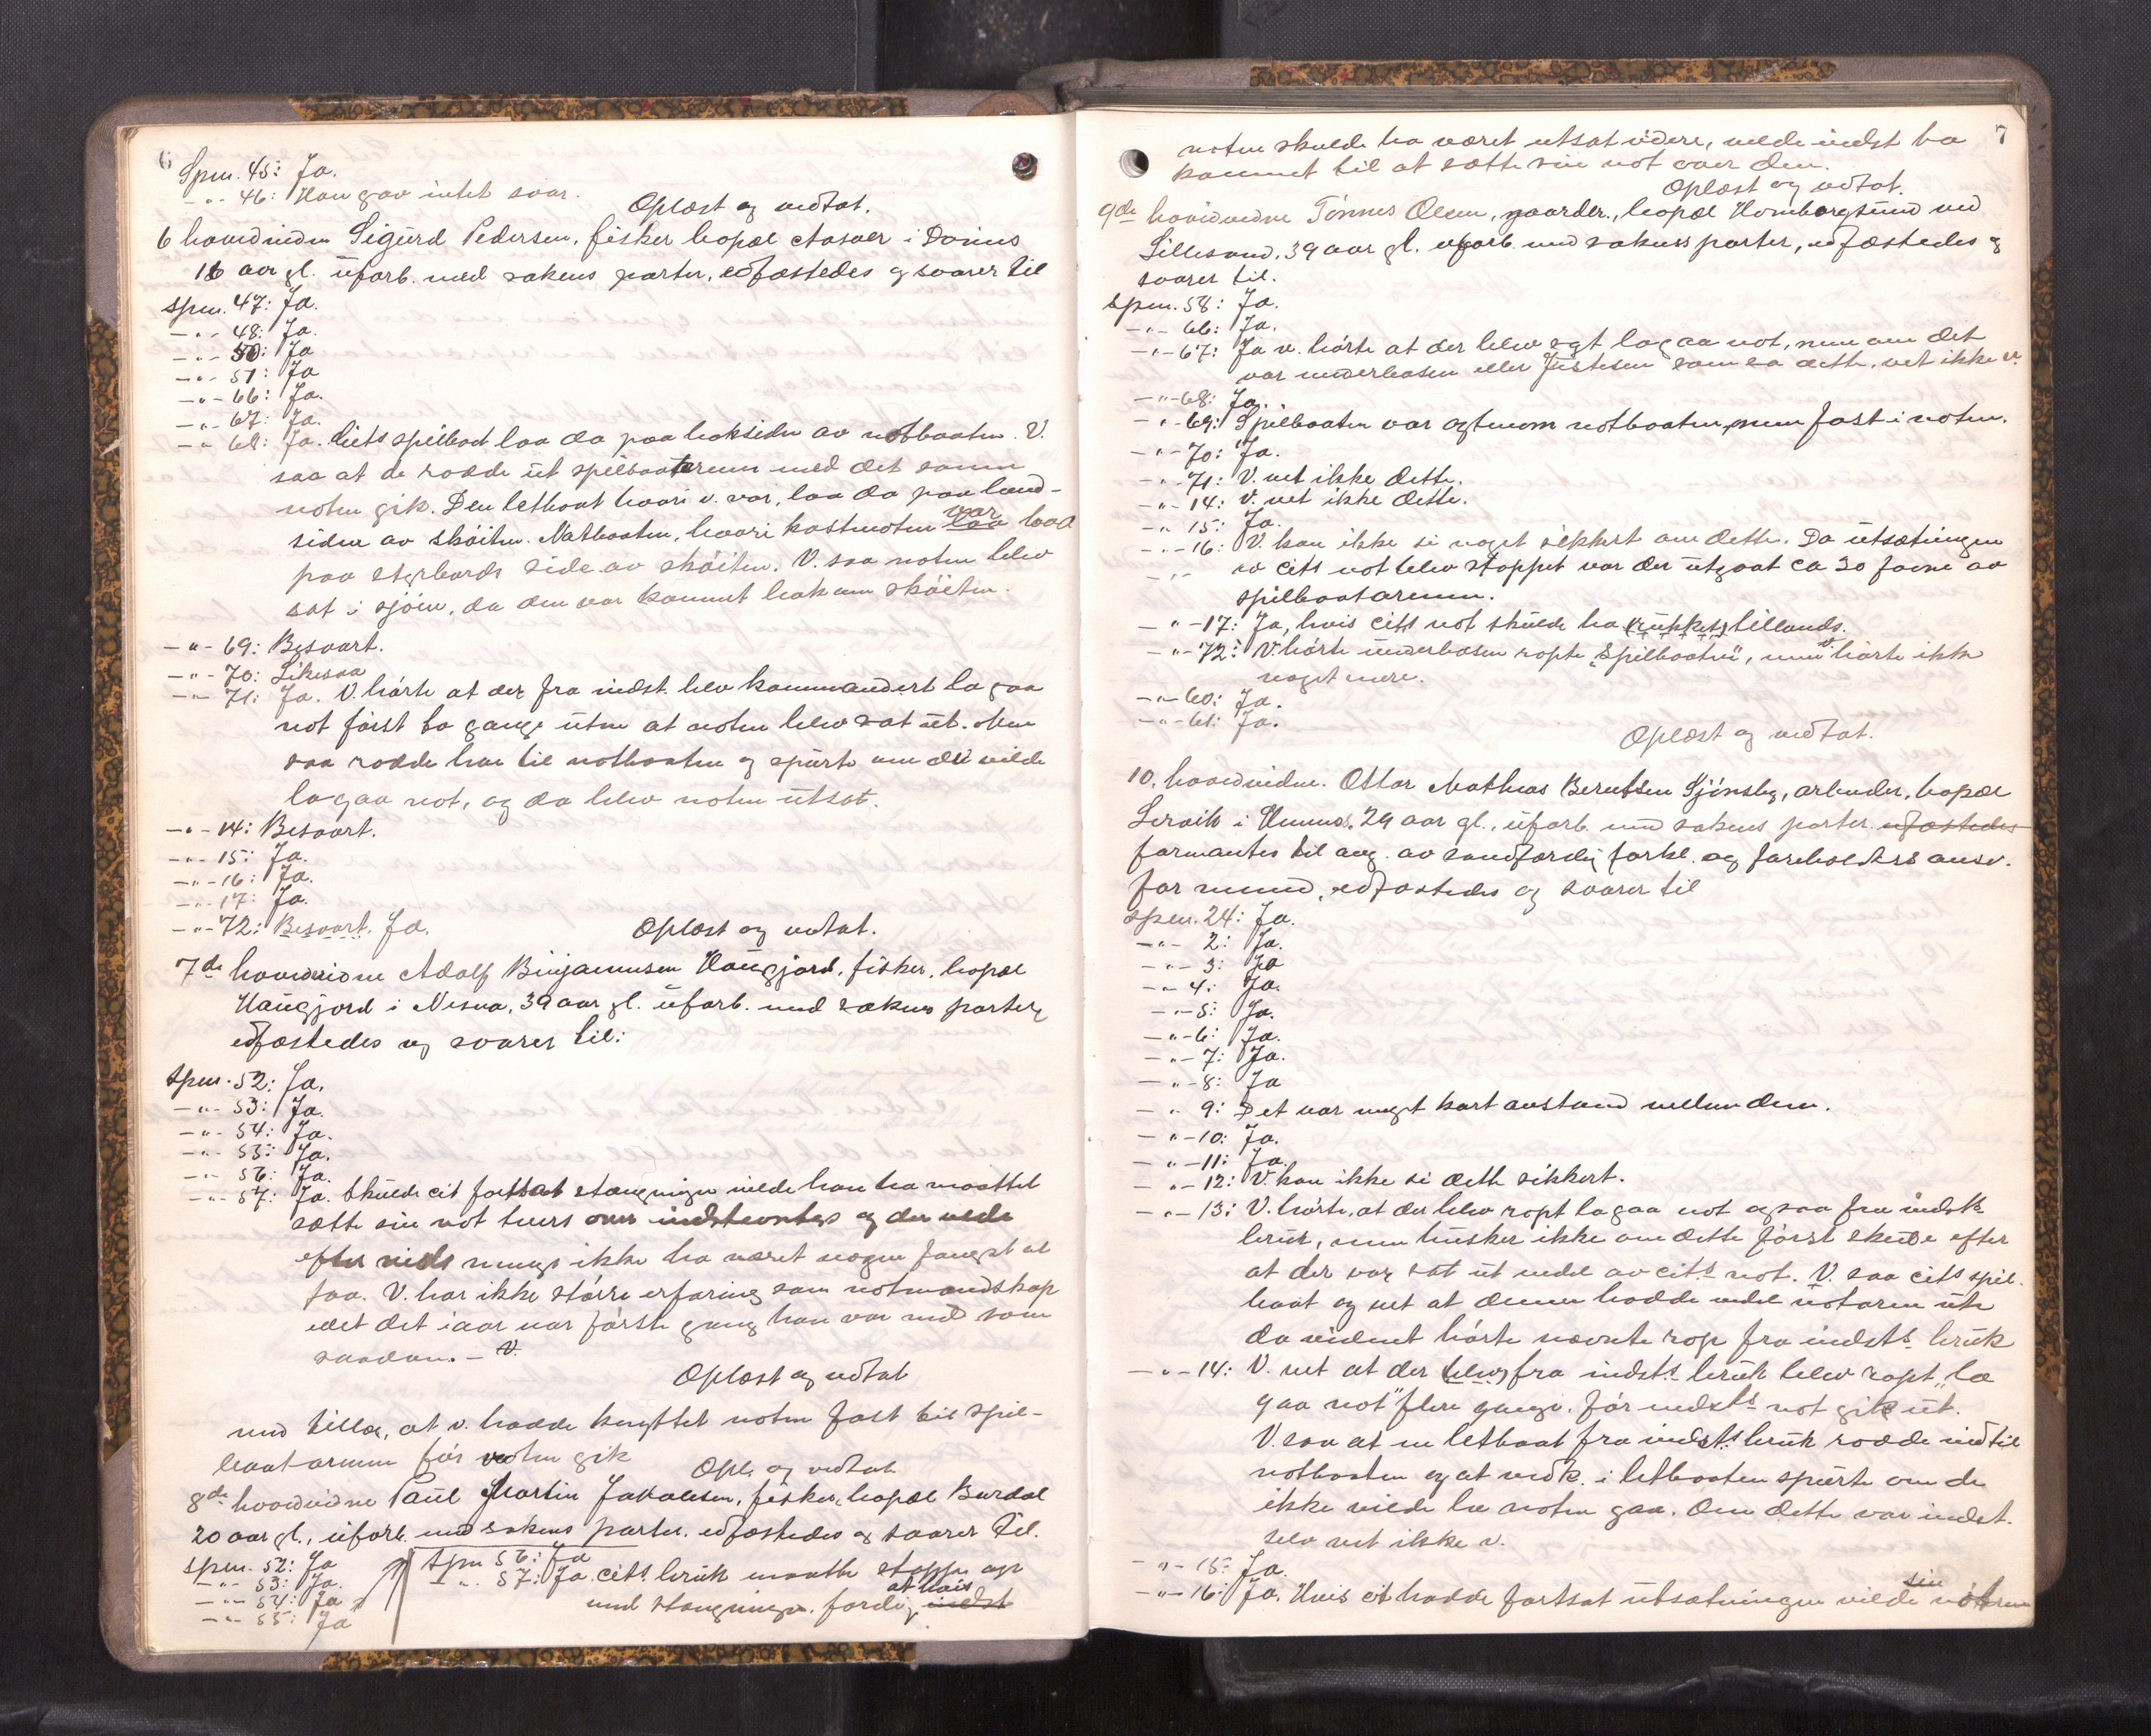 6
Spm. 45: Ja.
-"- 46: Han gav intet svar.
Oplæst og vedtat.
6 hovedvidne Sigurd Pedersen, fisker bopæl Aasvær i Dønnes
18 aar gl. uforb. med sakens parter, edfæstedes og svarer til
spm. 47: Ja.
-"- 48: Ja.
-"- 50: Ja
-"- 51: Ja
-"- 66: Ja.
-"- 67: Ja.
-"- 68: Ja. Cits spilbaat laa da paa baksiden av notbaaten. V.
saa at de rodde ut spilbaatarmen med det samme
noten gik. Den letbaat hvori v. var, laa da paa land-
siden av skøiten. Notbaaten, hvori kastenoten laa var
paa styrbords side av skøiten. V. saa noten blev
sat i sjøen, da den var kommet bak om skøiten.
-"- 69: Besvart.
-"- 70: Likesaa
-"- 71: Ja. V. hørte at der fra indst. blev kommandert la gaa
not først to gange uten at noten blev sat ut. Men
saa rodde han til notbaaten og spurte om de vilde
la gaa not, og da blev noten utsat.
-"- 14: Besvart.
-"- 15: Ja.
-"- 16: Ja.
-"- 17: Ja.
-"- 72: Besvart. Ja.
Oplæst og vedtat.
7de hovedvidne Adolf Binjamensen Haugjord, fisker, bopæl
Haugjord i Nesna, 39 aar gl. uforb. med sakens parter,
edfæstedes og svarer til:
Spm. 52: Ja.
-"- 53: Ja.
-"- 54: Ja.
-"- 55: Ja.
-"- 56: Ja.
-"- 57: Ja. Skulde cit fortsat stængningen vilde han ha maattet
sætte sin not tvers over indstevntes og der vilde
efter vids mening ikke ha været nogen fangst at
faa. V. har ikke større erfaring som notmandskap
idet det iaar var første gang han var med som
saadan. - V.
Oplæst og vedtat
med tillæg, at v. hadde knyttet noten fast til spil-
baatarmen før noten gik
Opl. og vedtat
8de hovedvidne Paul Martin Jakobsen, fisker, bopæl Burdal
20 aar gl., uforb. med sakens parter. edfæstedes og svarer til.
spm. 52: Ja
-"- 53: Ja.
-"- 54: Ja
-"- 55: Ja
spm 56: Ja
-"- 57: Ja. cits bruk maatte stoppe op
med stængningen. fordi at hvis indst
7
noten skulde ha været utsat videre, vilde indst ha
kommet til at sætte sin not over den.
Oplæst og vedtat.
9de hovedvidne Tønnes Olsen, gaarder., bopæl Homborgsund ved
Lillesand, 39 aar gl. uforb. med sakens parter, edfæstedes og
svarer til.
Spm. 58: Ja.
-"- 66: Ja.
-"- 67: Ja v. hørte at der blev sagt la gaa not, men om det
var underbasen eller Justesen som sa dette, vet ikke v.
-"- 68: Ja.
-"- 69: Spilbaaten var agtenom notbaaten, men fast i noten.
-"- 70: Ja.
-"- 71: V. vet ikke dette.
-"- 14: V. vet ikke dette.
-"- 15: Ja.
-"- 16: V. kan ikke si noget sikkert om dette. Da utsætningen
-"- av cits not blev stoppet var der utgaat ca 30 favne av
spilbaatarmen.
-"- 17: Ja, hvis cits not skulde ha (rukket) tillands.
-"- 72: V. hørte underbasen ropte "Spilbaaten", men v hørte ikke
noget mere.
-"- 60: Ja.
-"- 61: Ja.
Oplæst og vedtat.
10. hovedvidne. Ottar Mathias Berntsen Sjønsby, arbeider, bopæl
Leravik i Hemnes, 29 aar gl., uforb. med sakens parter. edfæstedes
formantes til avg. av sandfærdig forkl. og foreholdtes ansv.
for mened, edfæstedes og svarer til
spm. 24: Ja.
-"- 2: Ja.
-"- 3: Ja
-"- 4: Ja.
-"- 5: Ja.
-"- 6: Ja.
-"- 7: Ja.
-"- 8: Ja
-"- 9: Det var meget kort avstand mellem dem.
-"- 10: Ja.
-"- 11: Ja.
-"- 12: V. kan ikke si dette sikkert.
-"- 13: V. hørte, at der blev ropt la gaa not ogsaa fra indsts
bruk, men husker ikke om dette først skedde efter
at der var sat ut endel av cits not. V. saa cits spil-
baat og vet at denne hadde endel notarm ute
da vidnet hørte nævnte rop fra indsts bruk
-"- 14: V. vet at der (blev) fra indsts bruk blev ropt "la
gaa not" flere gange, før indsts not gik ut.
V. saa at en letbaat fra indsts bruk rodde ind til
notbaaten og at vedk. i letbaaten spurte om de
ikke vilde la noten gaa. Om dette var indst.
selv vet ikke v.
-"- 15: Ja.
-"- 16: Ja. Hvis cit hadde fortsat utsætningen vilde sin notarm